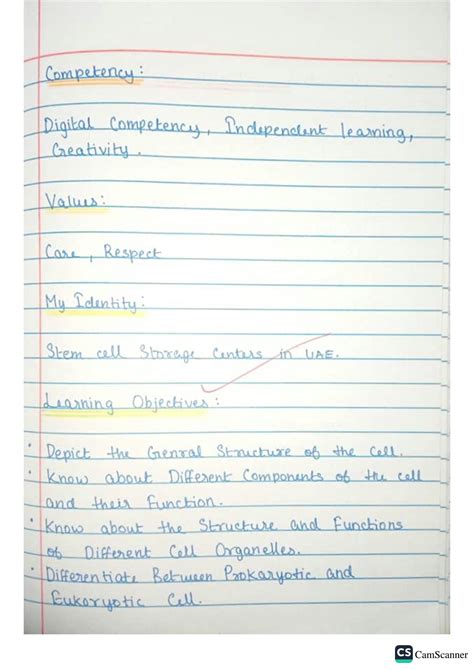 Competency:
Digital Competency, Independent learning,
Creativity.
Values:
Care, Respect
My Identity:
Stem cell Storage Centers in UAE.
Learning Objectives:
• Depict the Genral Structure of the Cell.
• Know about Different Components of the cell
and their Function.
• Know about the Structure and Functions
of Different Cell Organelles.
• Differentiate Between Prokaryotic and
Eukaryotic Cell.
CS CamScanner